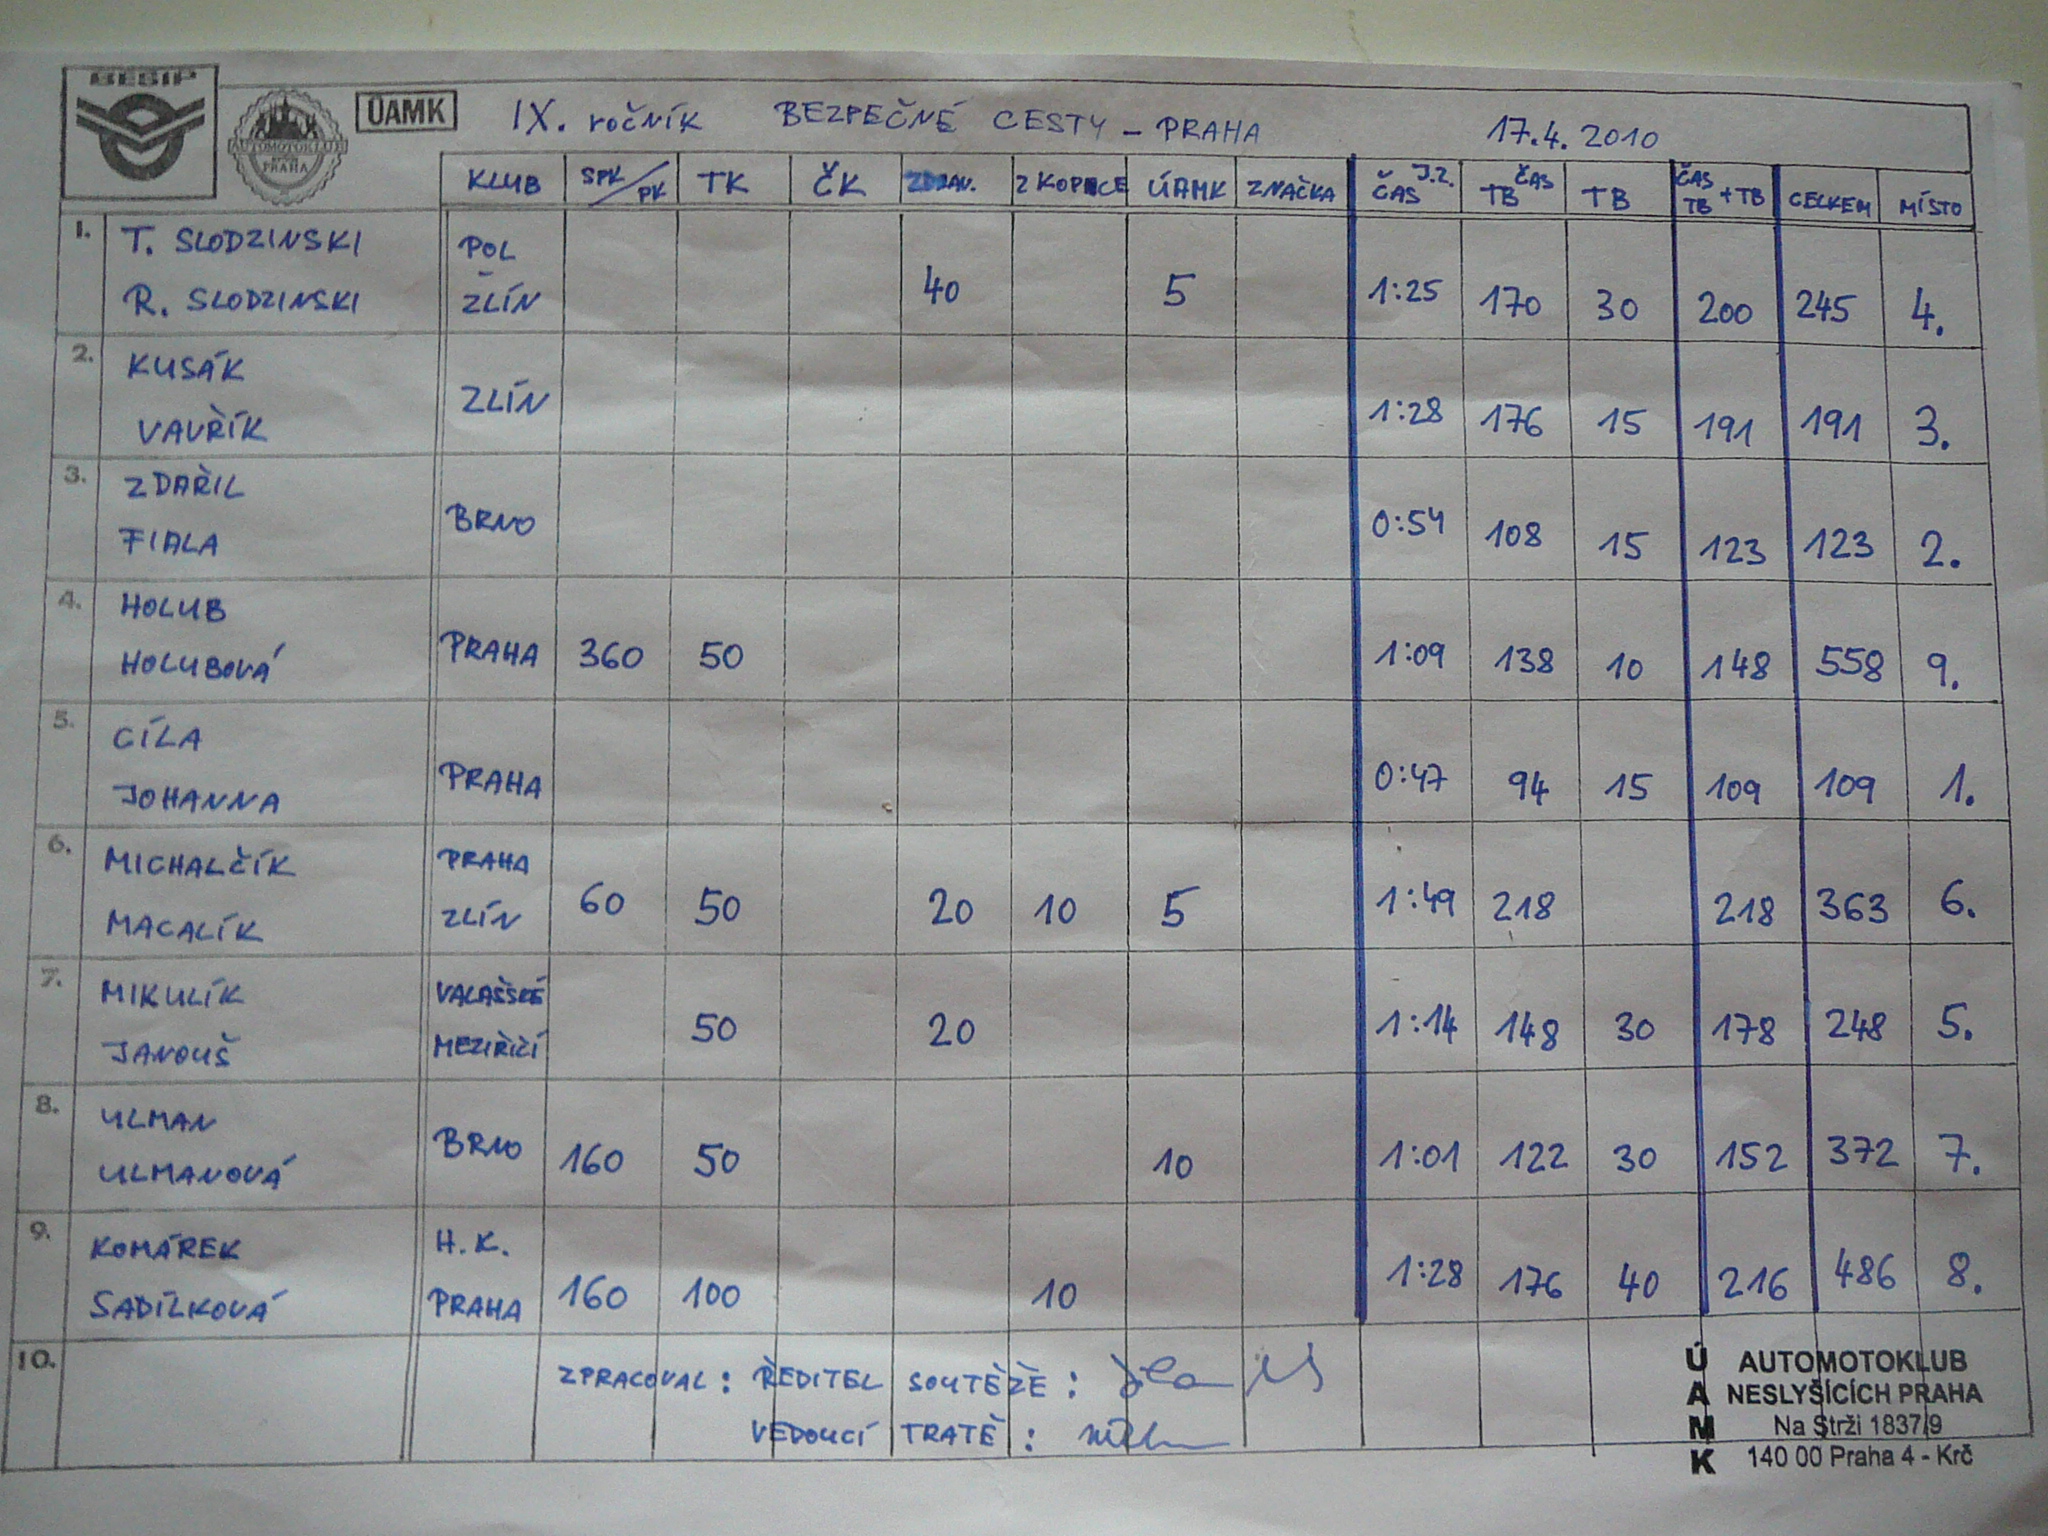 BESIP
AUTOMOTOKLUB
PRAHA
ÚAMK
IX. ročník BEZPEČNÉ CESTY – PRAHA 17.4.2010
KLUB SPK/PK TK ČK ZDRAV. Z KOPCE ÚAMK ZNAČKA ČAS J.Z. ČAS TB TB ČAS TB + TB CELKEM MÍSTO
1. T. SLODZINSKI POL
R. SLODZINSKI - ZLÍN 40 5 1:25 170 30 200 245 4.
2. KUSÁK
VAVŘÍK ZLÍN 1:28 176 15 191 191 3.
3. ZDAŘIL
FIALA BRNO 0:54 108 15 123 123 2.
4. HOLUB
HOLUBOVÁ PRAHA 360 50 1:09 138 10 148 558 9.
5. CÍLA
JOHANNA PRAHA 0:47 94 15 109 109 1.
6. MICHALČÍK PRAHA
MACALÍK ZLÍN 60 50 20 10 5 1:49 218 218 363 6.
7. MIKULÍK VALAŠSKÉ
JANOUŠ MEZIŘIČÍ 50 20 1:14 148 30 178 248 5.
8. ULMAN
ULMANOVÁ BRNO 160 50 10 1:01 122 30 152 372 7.
9. KOMÁREK H.K.
SADÍLKOVÁ PRAHA 160 100 10 1:28 176 40 216 486 8.
10.
ZPRACOVAL: ŘEDITEL SOUTĚŽE:
VEDOUCÍ TRATĚ:
ÚAMK
AUTOMOTOKLUB
NESLYŠÍCÍCH PRAHA
Na Strži 1837/9
140 00 Praha 4 - Krč